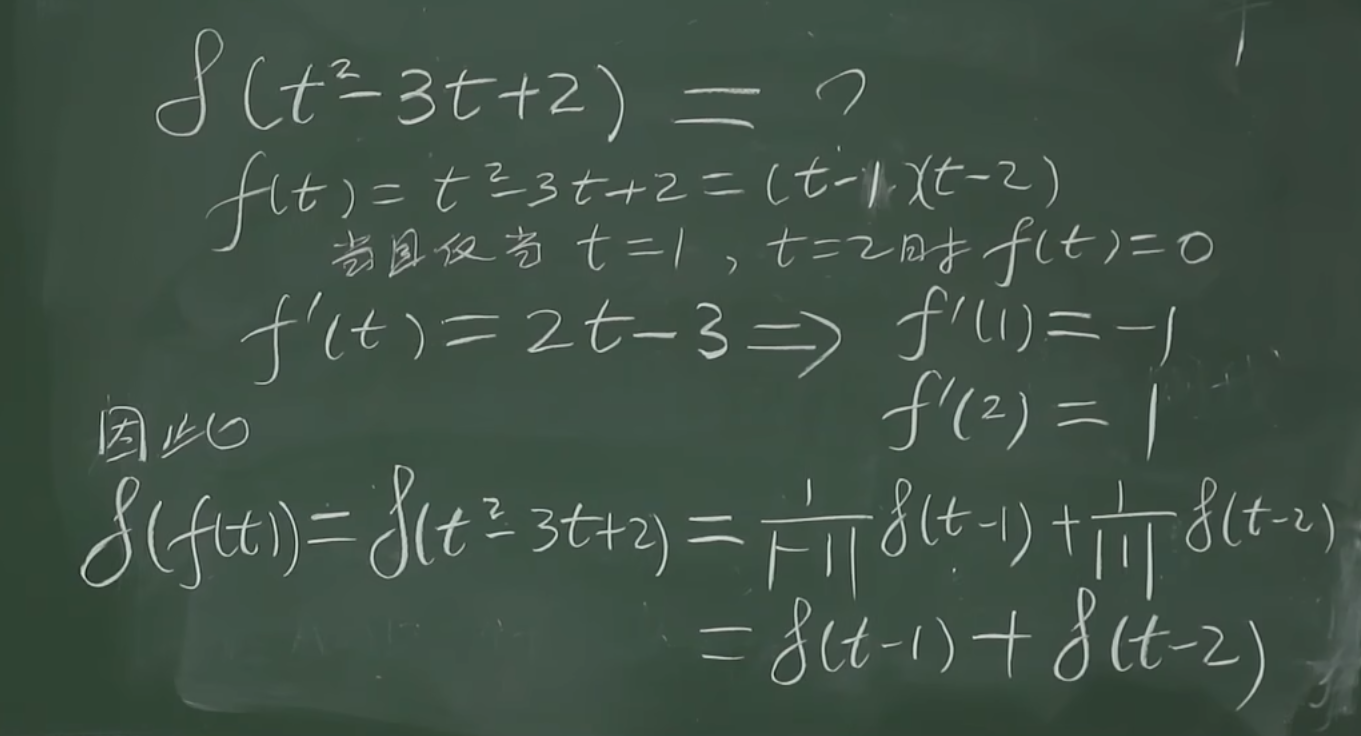 δ(t²-3t+2) = ?
f(t) = t²-3t+2 = (t-1)(t-2)
当且仅当 t=1, t=2时 f(t)=0
f'(t) = 2t-3 ⇒ f'(1) = -1
f'(2) = 1
因此
δ(f(t)) = δ(t²-3t+2) = 1/|-1| δ(t-1) + 1/|1| δ(t-2)
= δ(t-1) + δ(t-2)